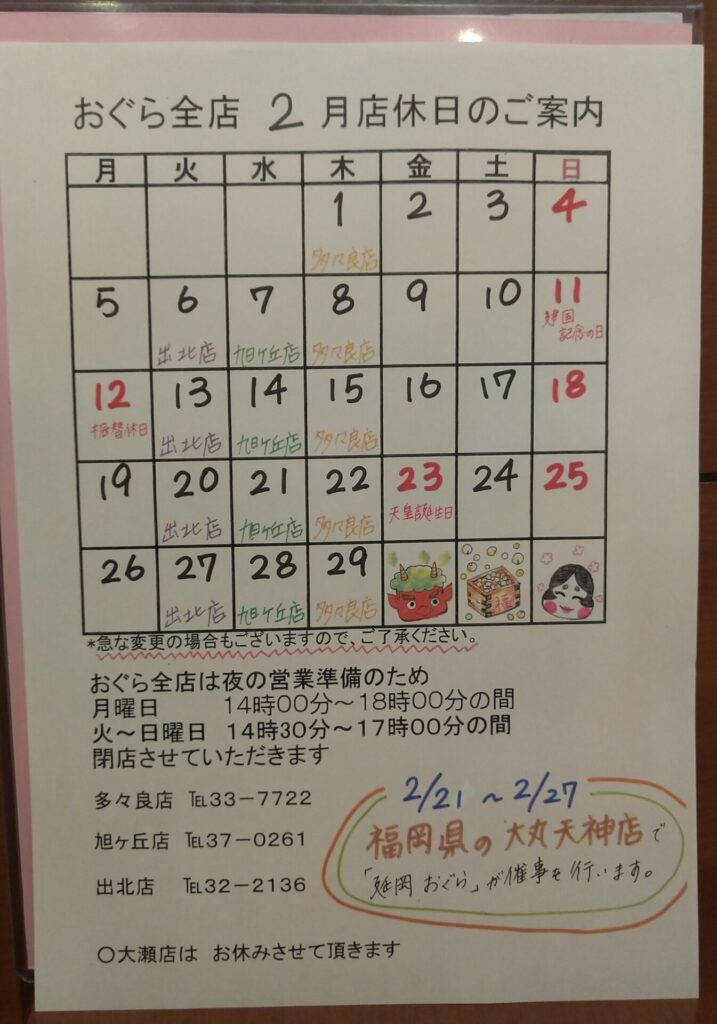 おぐら全店 2 月店休日のご案内
月 火 水 木 金 土 日
1 2 3 4
多々良店
5 6 7 8 9 10 11
出北店 旭ヶ丘店 多々良店 建国
記念の日
12 13 14 15 16 17 18
振替休日 出北店 旭ヶ丘店 多々良店
19 20 21 22 23 24 25
出北店 旭ヶ丘店 多々良店 天皇誕生日
26 27 28 29
福
出北店 旭ヶ丘店 多々良店
*急な変更の場合もございますので、ご了承ください。
おぐら全店は夜の営業準備のため
月曜日 14時00分～18時00分の間
火～日曜日 14時30分～17時00分の間
閉店させていただきます
多々良店 ℡33－7722
旭ヶ丘店 ℡37－0261
出北店 ℡32－2136
2/21 ～ 2/27
福岡県の 大丸天神店で
「延岡 おぐら」が催事を行います。
○大瀬店は お休みさせて頂きます